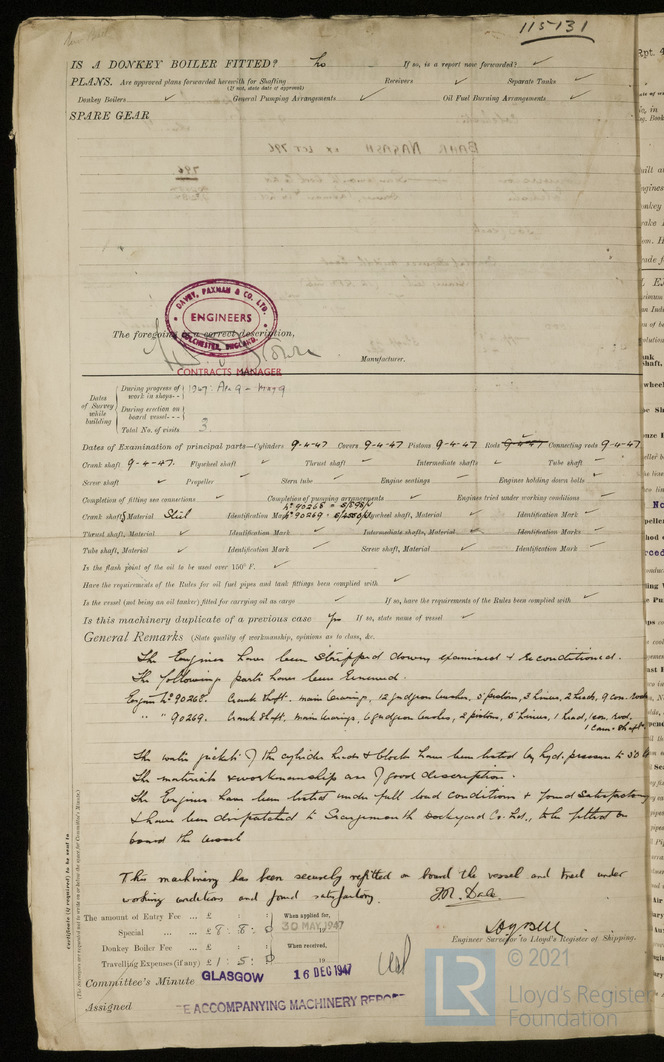 115131
IS A DONKEY BOILER FITTED? No If so, is a report now forwarded? ✓
PLANS. Are approved plans forwarded herewith for Shafting Receivers ✓ Separate Tanks ✓
(If not, state date of approval)
Donkey Boilers ✓ General Pumping Arrangements ✓ Oil Fuel Burning Arrangements ✓
SPARE GEAR
DAVEY, PAXMAN & CO. LTD.
ENGINEERS
COLCHESTER, ENGLAND.
The foregoing is a correct description,
Manufacturer.
CONTRACTS MANAGER
Dates of Survey while building
During progress of work in shops - - 1947: Apr 9 - May 9
During erection on board vessel - - -
Total No. of visits 3.
Dates of Examination of principal parts—Cylinders 9-4-47 Covers 9-4-47 Pistons 9-4-47 Rods 9-4-47 Connecting rods 9-4-47
Crank shaft 9-4-47. Flywheel shaft ✓ Thrust shaft ✓ Intermediate shafts ✓ Tube shaft ✓
Screw shaft ✓ Propeller ✓ Stern tube ✓ Engine seatings ✓ Engines holding down bolts ✓
Completion of fitting sea connections ✓ Completion of pumping arrangements ✓ Engines tried under working conditions ✓
Crank shaft Material Steel Identification Mark No 90268 = 5/898/V Flywheel shaft, Material ✓ Identification Mark ✓
No 90269 =
Thrust shaft, Material ✓ Identification Mark ✓ Intermediate shafts, Material ✓ Identification Marks ✓
Tube shaft, Material ✓ Identification Mark ✓ Screw shaft, Material ✓ Identification Mark ✓
Is the flash point of the oil to be used over 150° F. ✓
Have the requirements of the Rules for oil fuel pipes and tank fittings been complied with ✓
Is the vessel (not being an oil tanker) fitted for carrying oil as cargo ✓ If so, have the requirements of the Rules been complied with ✓
Is this machinery duplicate of a previous case Yes If so, state name of vessel ✓
General Remarks (State quality of workmanship, opinions as to class, &c.
The Engines have been stripped down, examined & reconditioned.
The following parts have been renewed.
Engine No 90268. Crank shaft. main bearings, 12 gudgeon bushes, 5 pistons, 3 liners, 2 heads, 9 con. rods
" " 90269. Crank shaft. main bearings, 6 gudgeon bushes, 2 pistons, 5 liners, 1 head, 1 con. rod,
1 cam shaft
The water jackets of the cylinder heads & block have been tested by hyd. pressure to
The materials & workmanship are of good description.
The Engines have been tested under full load conditions & found satisfactory
& have been dispatched to Grangemouth Dockyard Co. Ltd., to be fitted on
board the vessel
This machinery has been securely refitted on board the vessel and tried under
working conditions and found satisfactory.
The amount of Entry Fee ... £ : : When applied for,
Special ... ... £ 8 : 8 : 0 30 MAY 1947
Donkey Boiler Fee ... £ : : When received,
Travelling Expenses (if any) £ 1 : 5 : 0 19
Engineer Surveyor to Lloyd's Register of Shipping.
Committee's Minute GLASGOW 16 DEC 1947
Assigned E ACCOMPANYING MACHINERY REPORT
Certificate (if required) to be sent to
(The Surveyors are requested not to write on or below the space for Committee's Minute.)
© 2021
LR
Lloyd's Register
Foundation